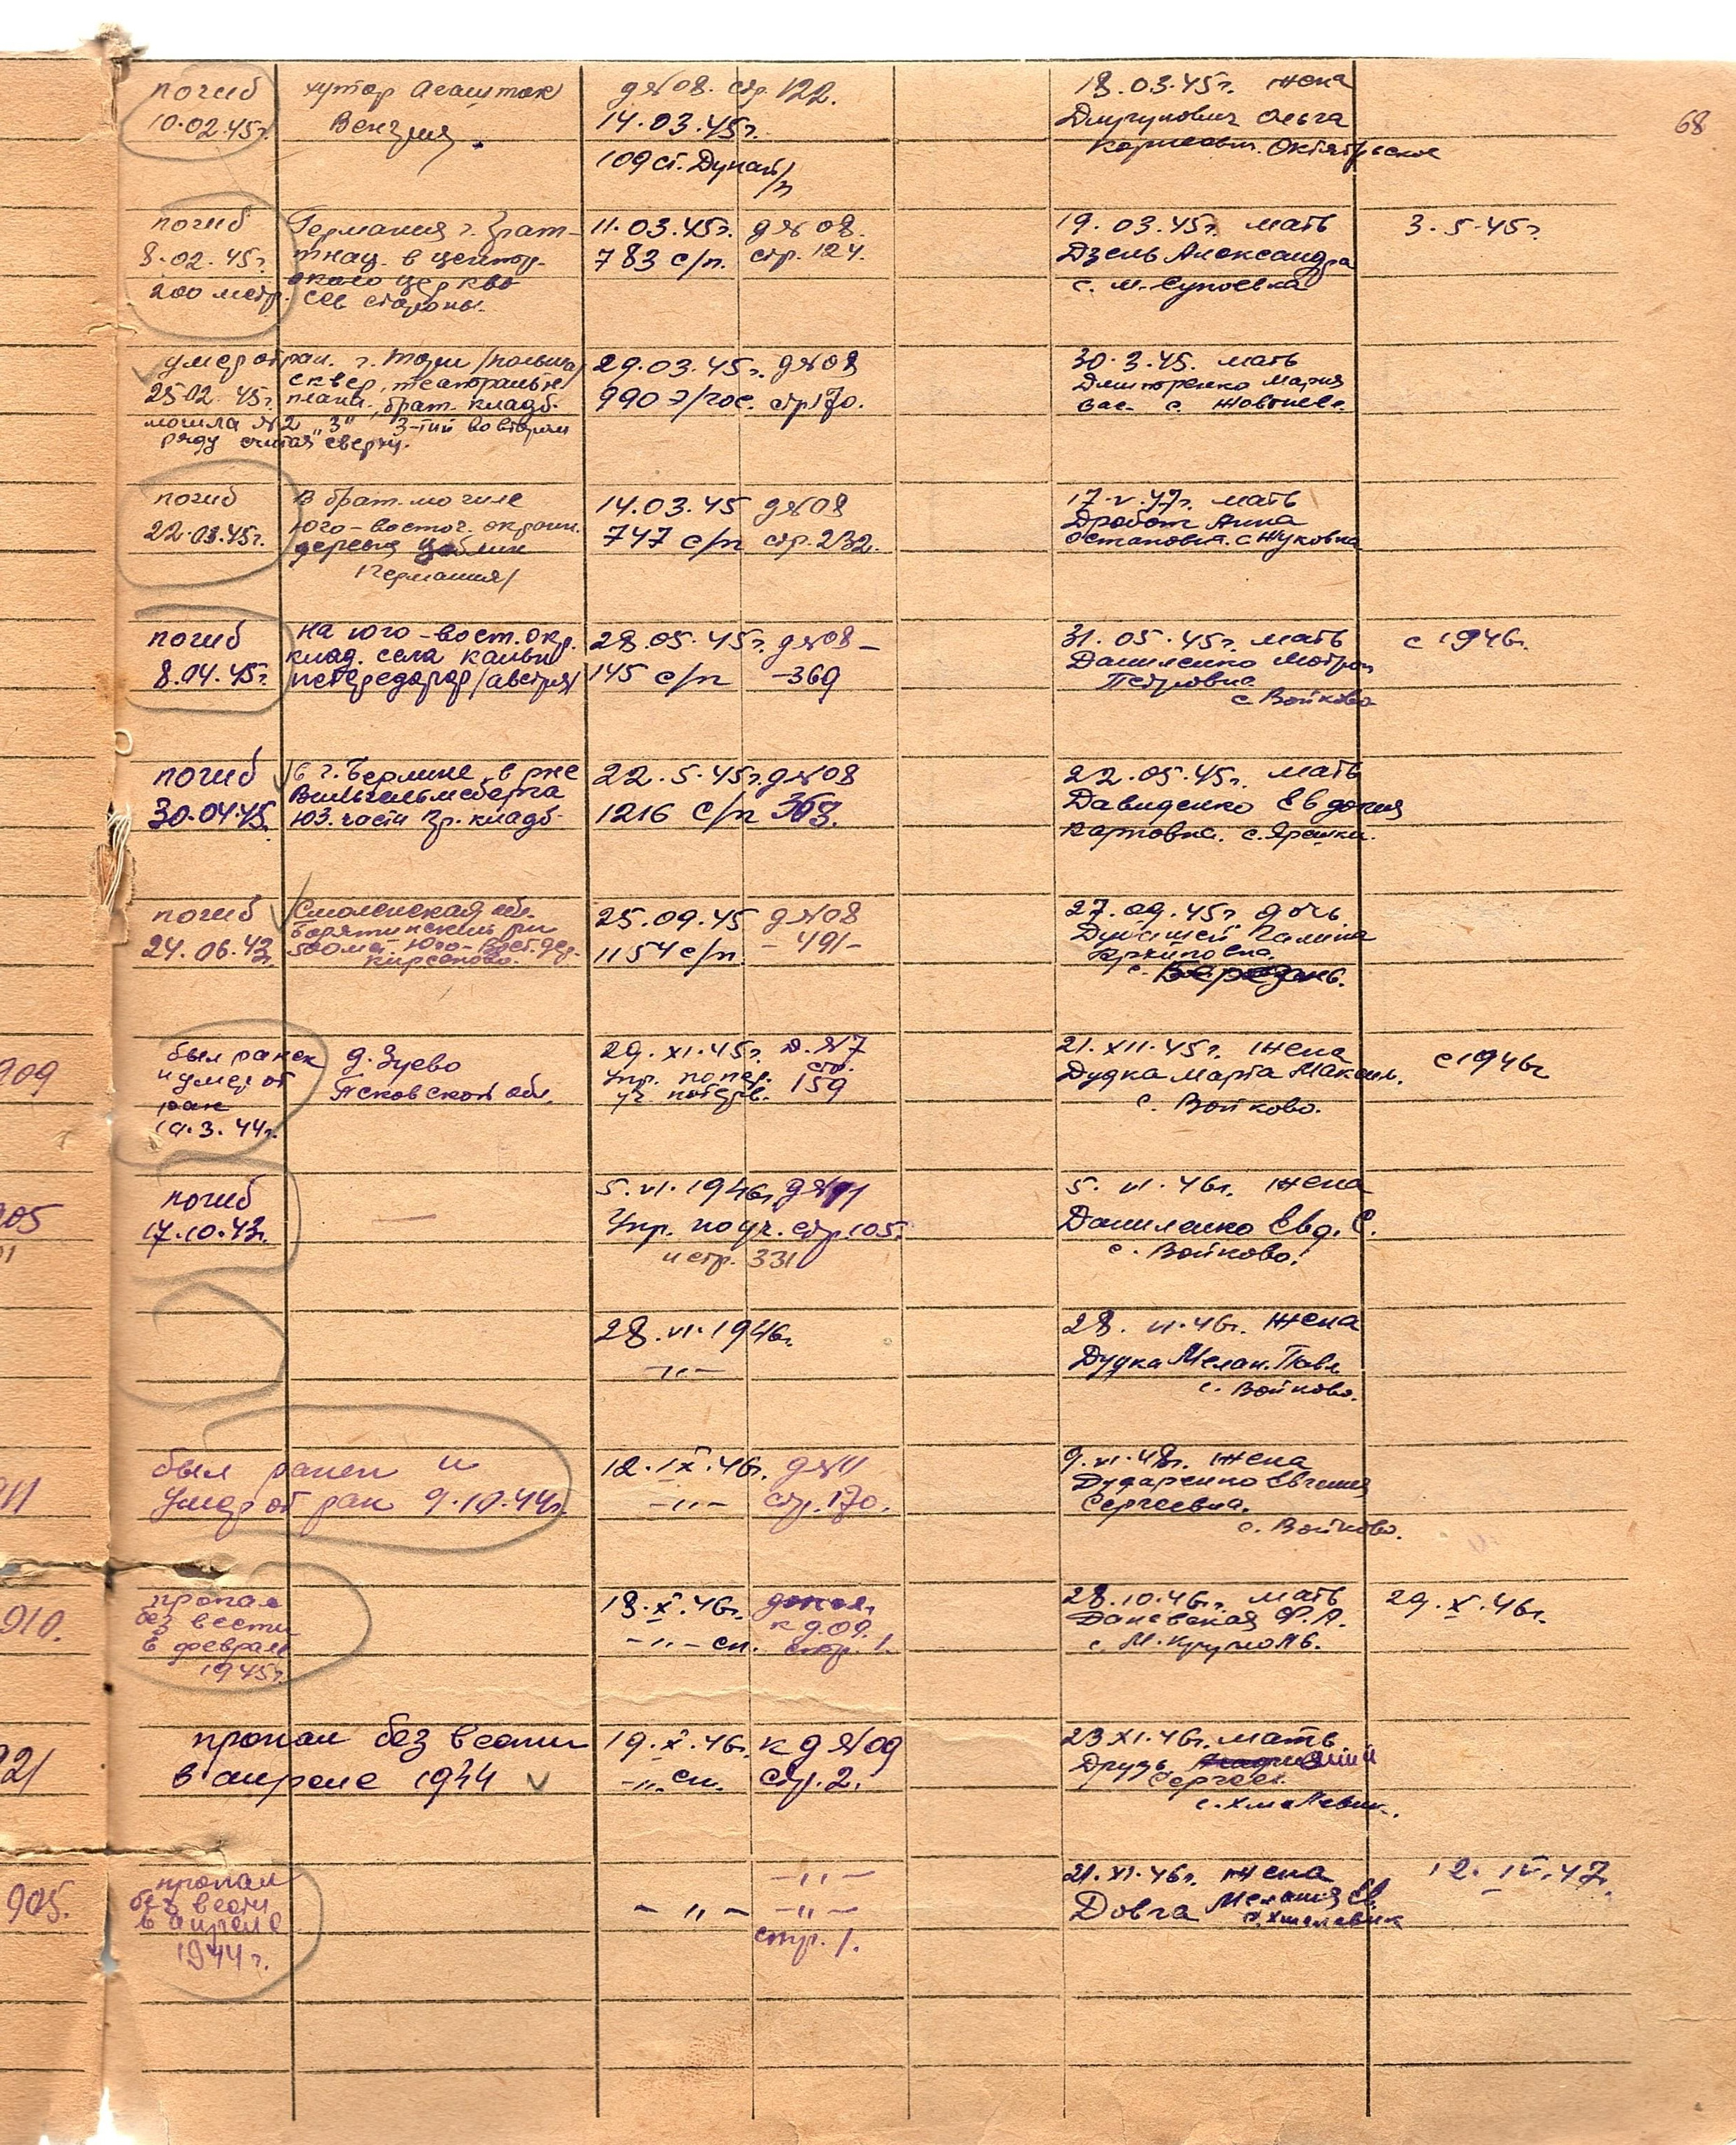 68
погиб
10.02.45г.
хутор Агаштак
Венгрия
д№08. стр. 122.
14.03.45г.
109 ст. Дунай/п
18.03.45г. жена
Ольга
Октябрьское
погиб
8.02.45г.
200 метр.
Германия г.
в центр.
около церкви
сев стороны.
11.03.45г. д№08.
783 с/п. стр. 124.
19.03.45г. мать
Дзель Александра
с. М-Супоевка
3.5.45г.
умер от ран. г. /польша/
25.02.45г. сквер, театральн
плац., брат. кладб.
могила №2 „3" 3-тий во втором
ряду считая сверху.
29.03.45г. д№08
990 э/гос. стр170.
30.3.45. мать
Дмитренко Мария
Вас. с. Жовтнев.
погиб
22.03.45г.
В брат. могиле
юго-восточ. окраин.
деревня
/Германия/
14.03.45 д№08
747 с/п стр. 232.
17.V.47г. мать
Дробот Анна
Остаповн. с Жуковка
погиб
8.04.45г.
на юго-вост. окр.
клад. села
/австрия/
28.05.45г. д№08-
145 с/п -369
31.05.45г. мать
Даниленко Мотрон
Петровна
с. Войково
с 1946г.
погиб
30.04.45.
в г. Берлине, в р-не
Вильгельмсберга
ЮЗ. части гр. кладб.
22.5.45г. д№08
1216 с/п 363.
22.05.45г. мать
Давиденко Евдокия
Карповна. с. Ярешки.
погиб
24.06.43г.
Смоленская обл.
Барятинский рн
500 мет. Юго-Вост. дер.
Кирсаново.
25.09.45 д№08
1154 с/п. -491-
27.09.45г дочь
Галина
Архиповна.
с. Березань.
909
был ранен
и умер от
ран
19.3.44г.
д. Зуево
Псковской обл.
29.XI.45г. д.№7
Упр. по пер. стр.
уч потерь. 159
21.XII.45г. жена
Дудка Марта Максим.
с. Войково.
с 1946г
905
погиб
17.10.43г.
—
5.VI.1946г. д№11
Упр. по уч. стр. 105.
и стр. 331
5.VI.46г. жена
Даниленко Евд. С.
с. Войково.
28.VI.1946г.
-„-
28.VI.46г. жена
Дудка Мелан. Павл
с. Войково.
911
был ранен и
умер от ран 9.10.44г.
12.IX.46г. д№11
-„- стр. 170.
9.VI.48г. жена
Дударенко Евгения
Сергеевна.
с. Войково.
910.
пропал
без вести
в феврале
1945г.
18.X.46г. допол.
к д.09.
-„- сп. стр. 1.
28.10.46г. мать
Даневская Ф.А.
с. М. Круполь.
29.X.46г.
921
пропал без вести
в апреле 1944
19.X.46г. к д№09
-„- сп. стр. 2.
23XI.46г. мать
Друзь
Сергеев.
с. Хмелевик.
905.
пропал
без вести
в апреле
1944г.
-„-
-„- -„-
стр. 1.
21.XI.46г. жена
Довга Мелания Ев.
с. Хмелевик
12.IV.47г.